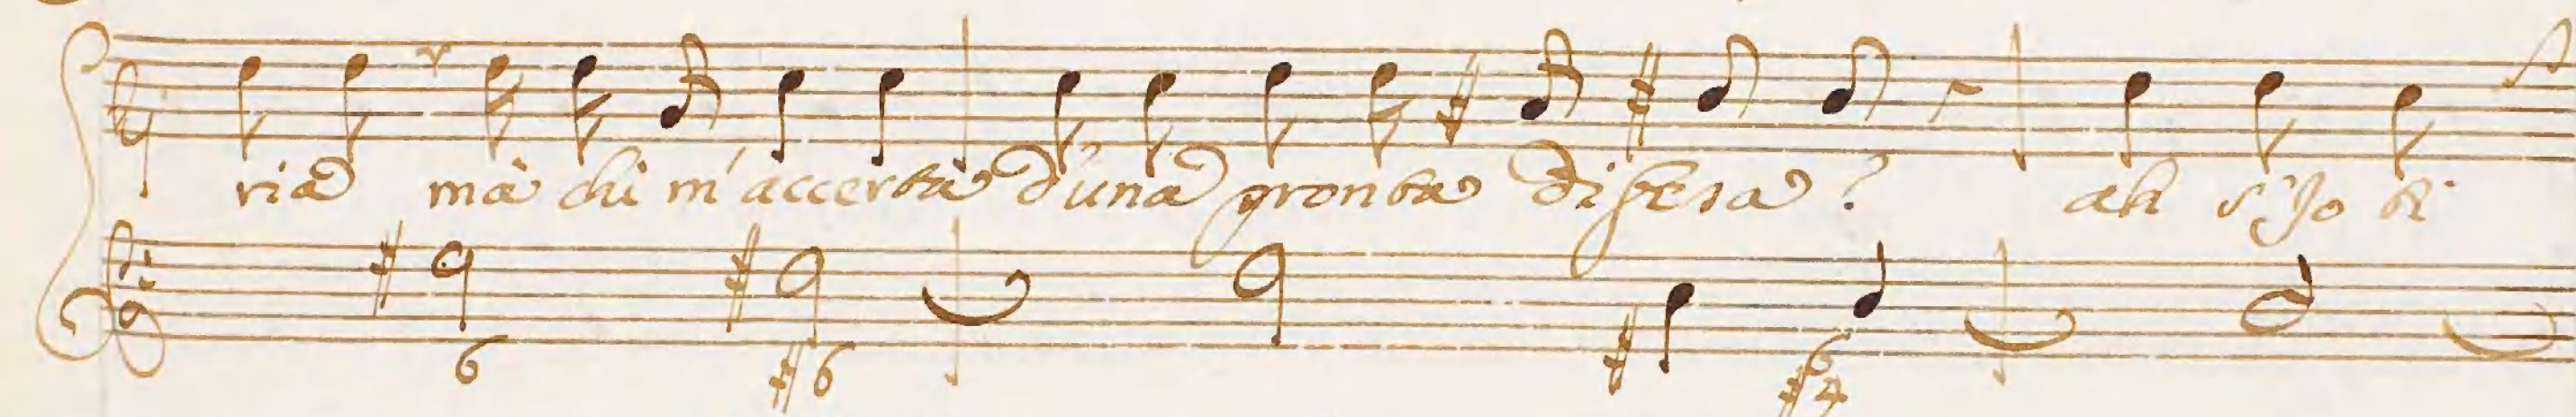 ria mà chi m'accerta d'una pronta difesa? ah s'Jo ti
6 #6 6 #4